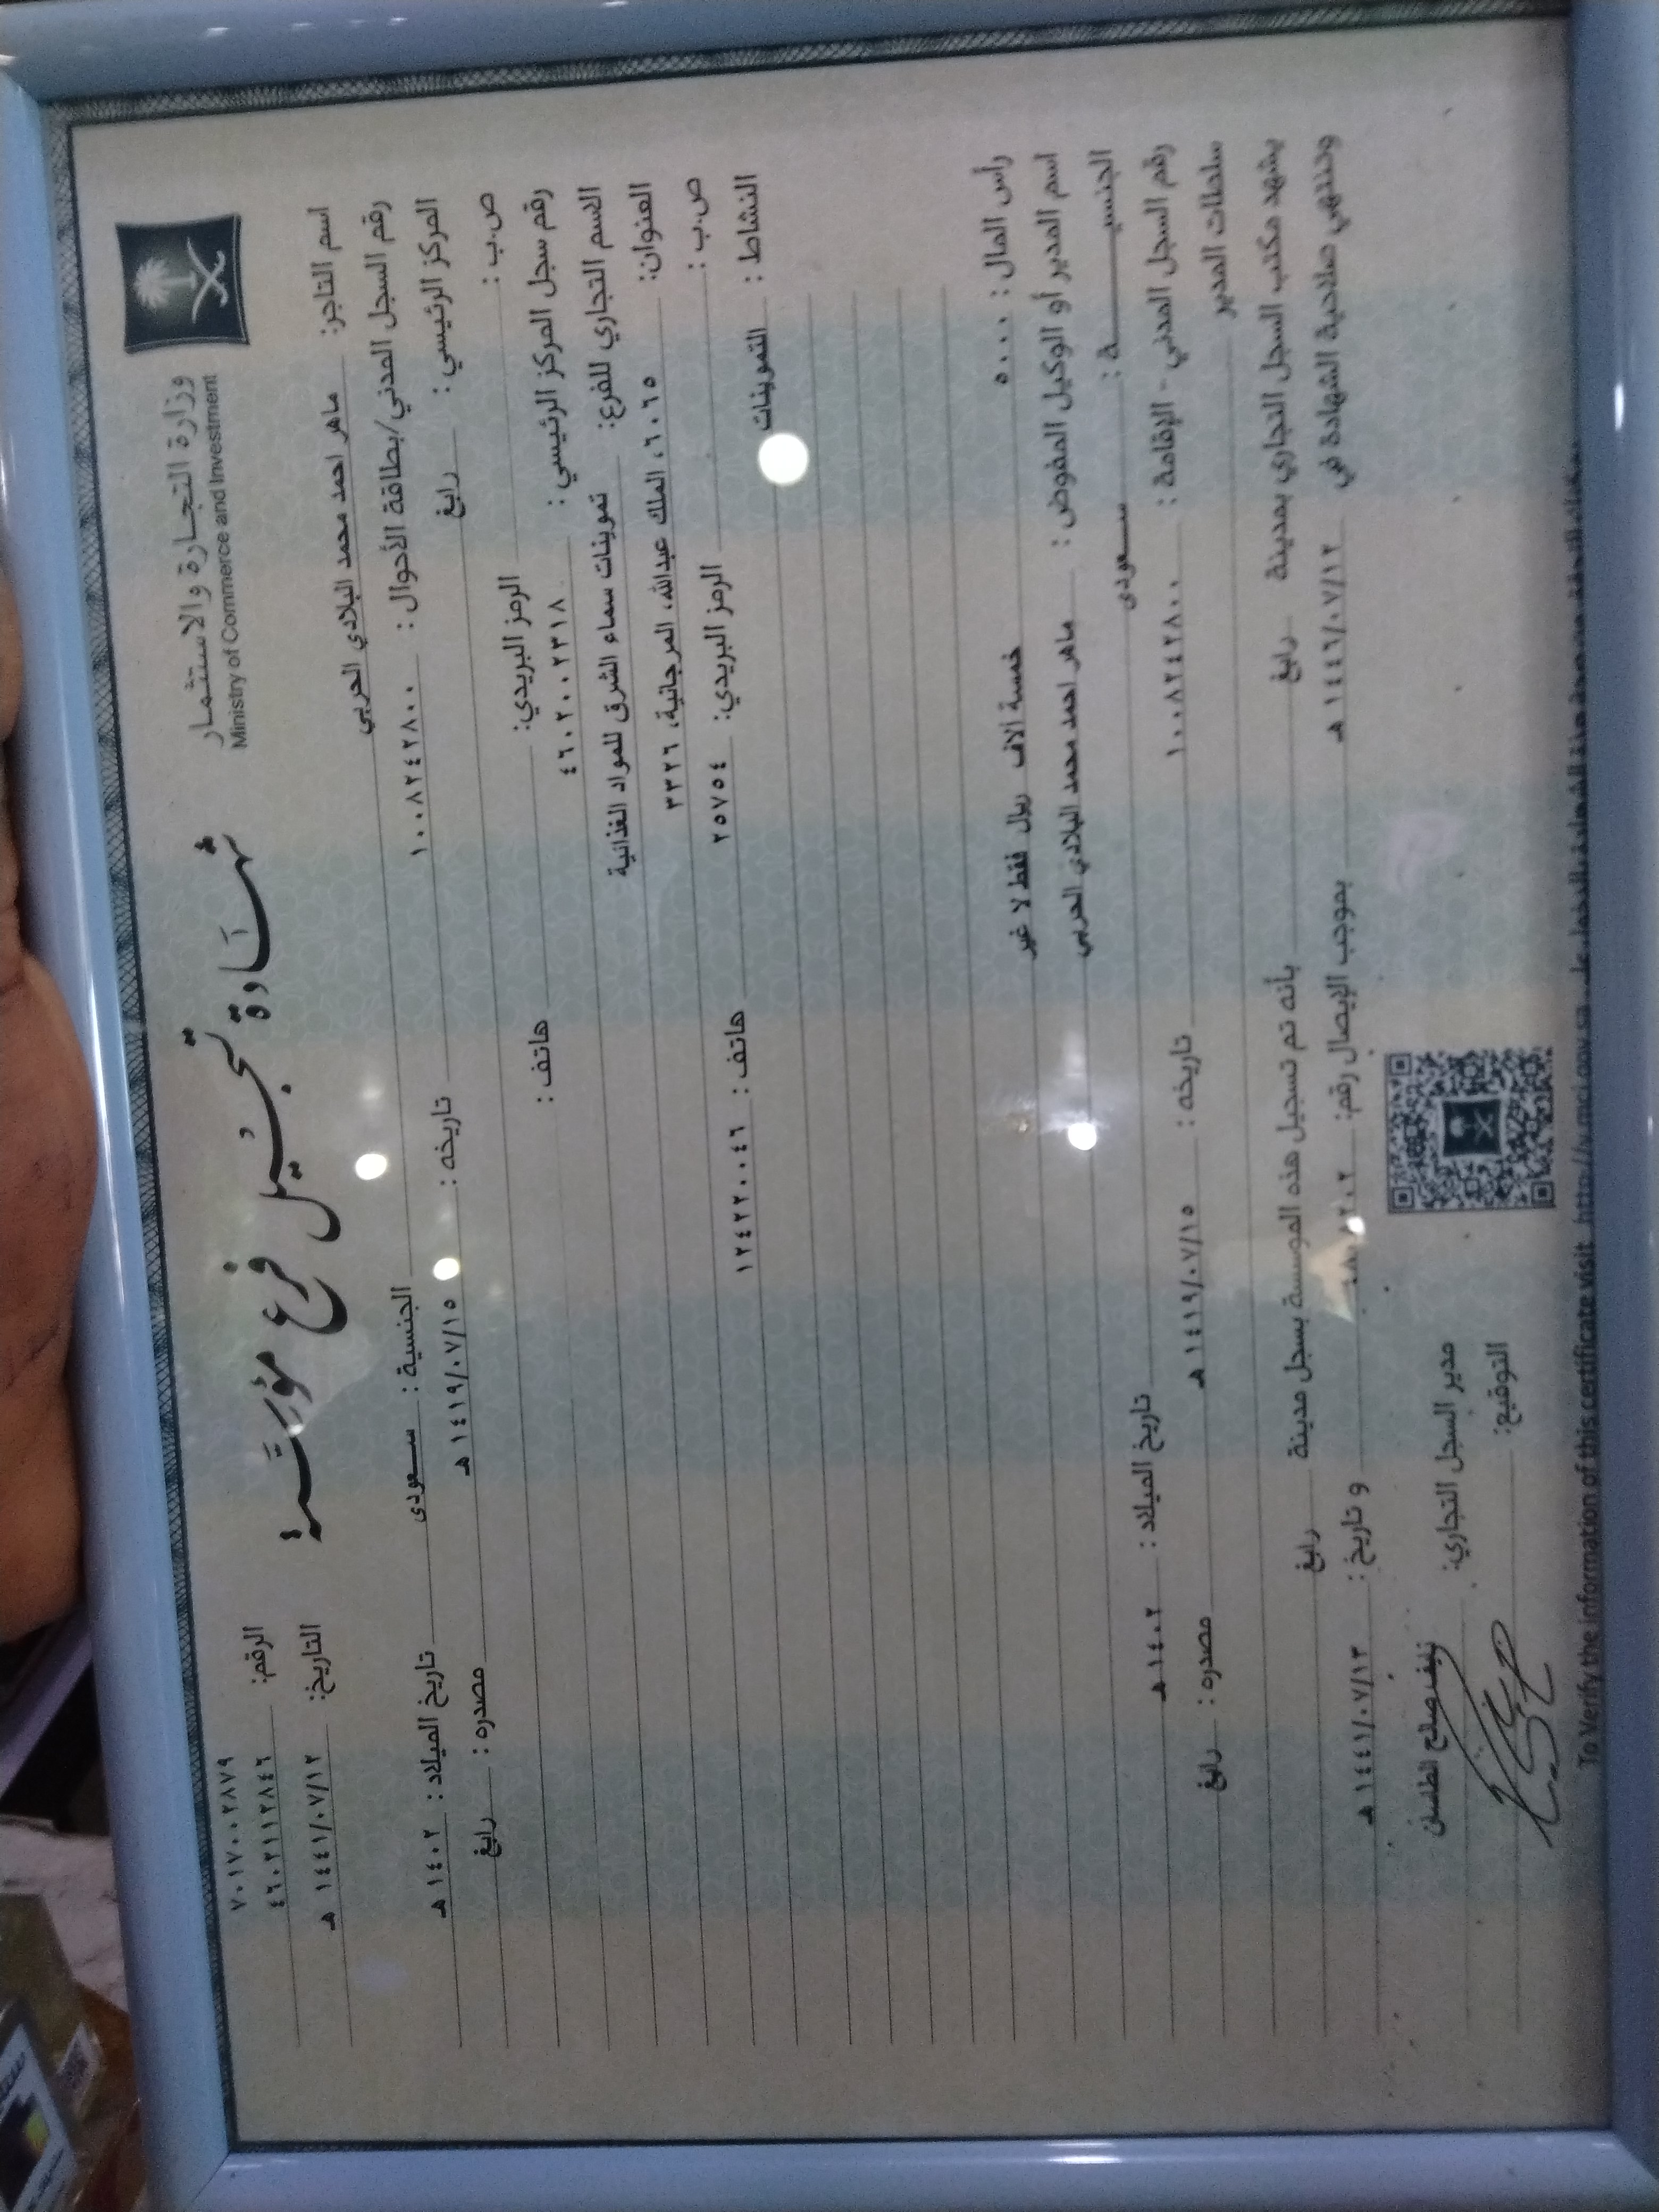 وزارة التجارة والاستثمار
Ministry of Commerce and Investment
شهادة تسجيل فرع مؤسسة
٧٠١٧٠٠٢٨٧٩
الرقم: ٤٦٠٢١١٢٨٤٦
التاريخ: ١٤٤١/٠٧/١٢ هـ
اسم التاجر: ماهر احمد محمد البلادي الحربي
رقم السجل المدني/بطاقة الأحوال: ١٠٠٨٢٤٢٨٠٠ الجنسية: سعودى تاريخ الميلاد: ١٤٠٢ هـ
المركز الرئيسي: رابغ تاريخه: ١٤١٩/٠٧/١٥ هـ مصدره: رابغ
ص.ب: الرمز البريدي: هاتف:
رقم سجل المركز الرئيسي: ٤٦٠٢٠٠٢٣١٨
الاسم التجاري للفرع: تموينات سماء الشرق للمواد الغذائية
العنوان: ٦٠٦٥، الملك عبدالله، المرجانية، ٣٣٢٦
ص.ب: الرمز البريدي: ٢٥٧٥٤ هاتف: ١٢٤٢٢٠٠٤٦
النشاط: التموينات
رأس المال: ٥٠٠٠ خمسة الاف ريال فقط لا غير
اسم المدير أو الوكيل المفوض: ماهر احمد محمد البلادي الحربي
الجنسية: سعودى تاريخ الميلاد: ١٤٠٢ هـ
رقم السجل المدني - الإقامة: ١٠٠٨٢٤٢٨٠٠ تاريخه: ١٤١٩/٠٧/١٥ هـ مصدره: رابغ
سلطات المدير
يشهد مكتب السجل التجاري بمدينة رابغ بأنه تم تسجيل هذه المؤسسة بسجل مدينة رابغ
وتنتهي صلاحية الشهادة في ١٤٤٦/٠٧/١٢ هـ بموجب الإيصال رقم: و تاريخ: ١٤٤١/٠٧/١٣ هـ
مدير السجل التجاري: صالح
التوقيع:
To Verify the information of this certificate visit http://v.mci.gov.sa